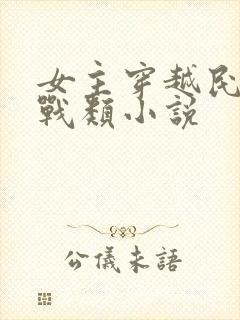 女主穿越民
戰類小說
公儀未語